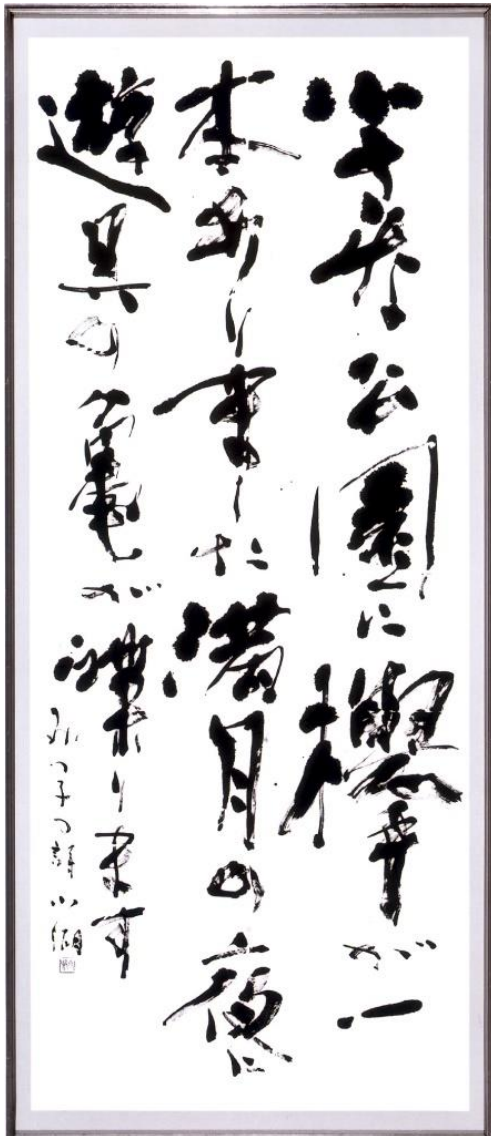 小さな公園に欅が一
本ありました満月の夜に
遊具の亀が喋ります
子の詩 小